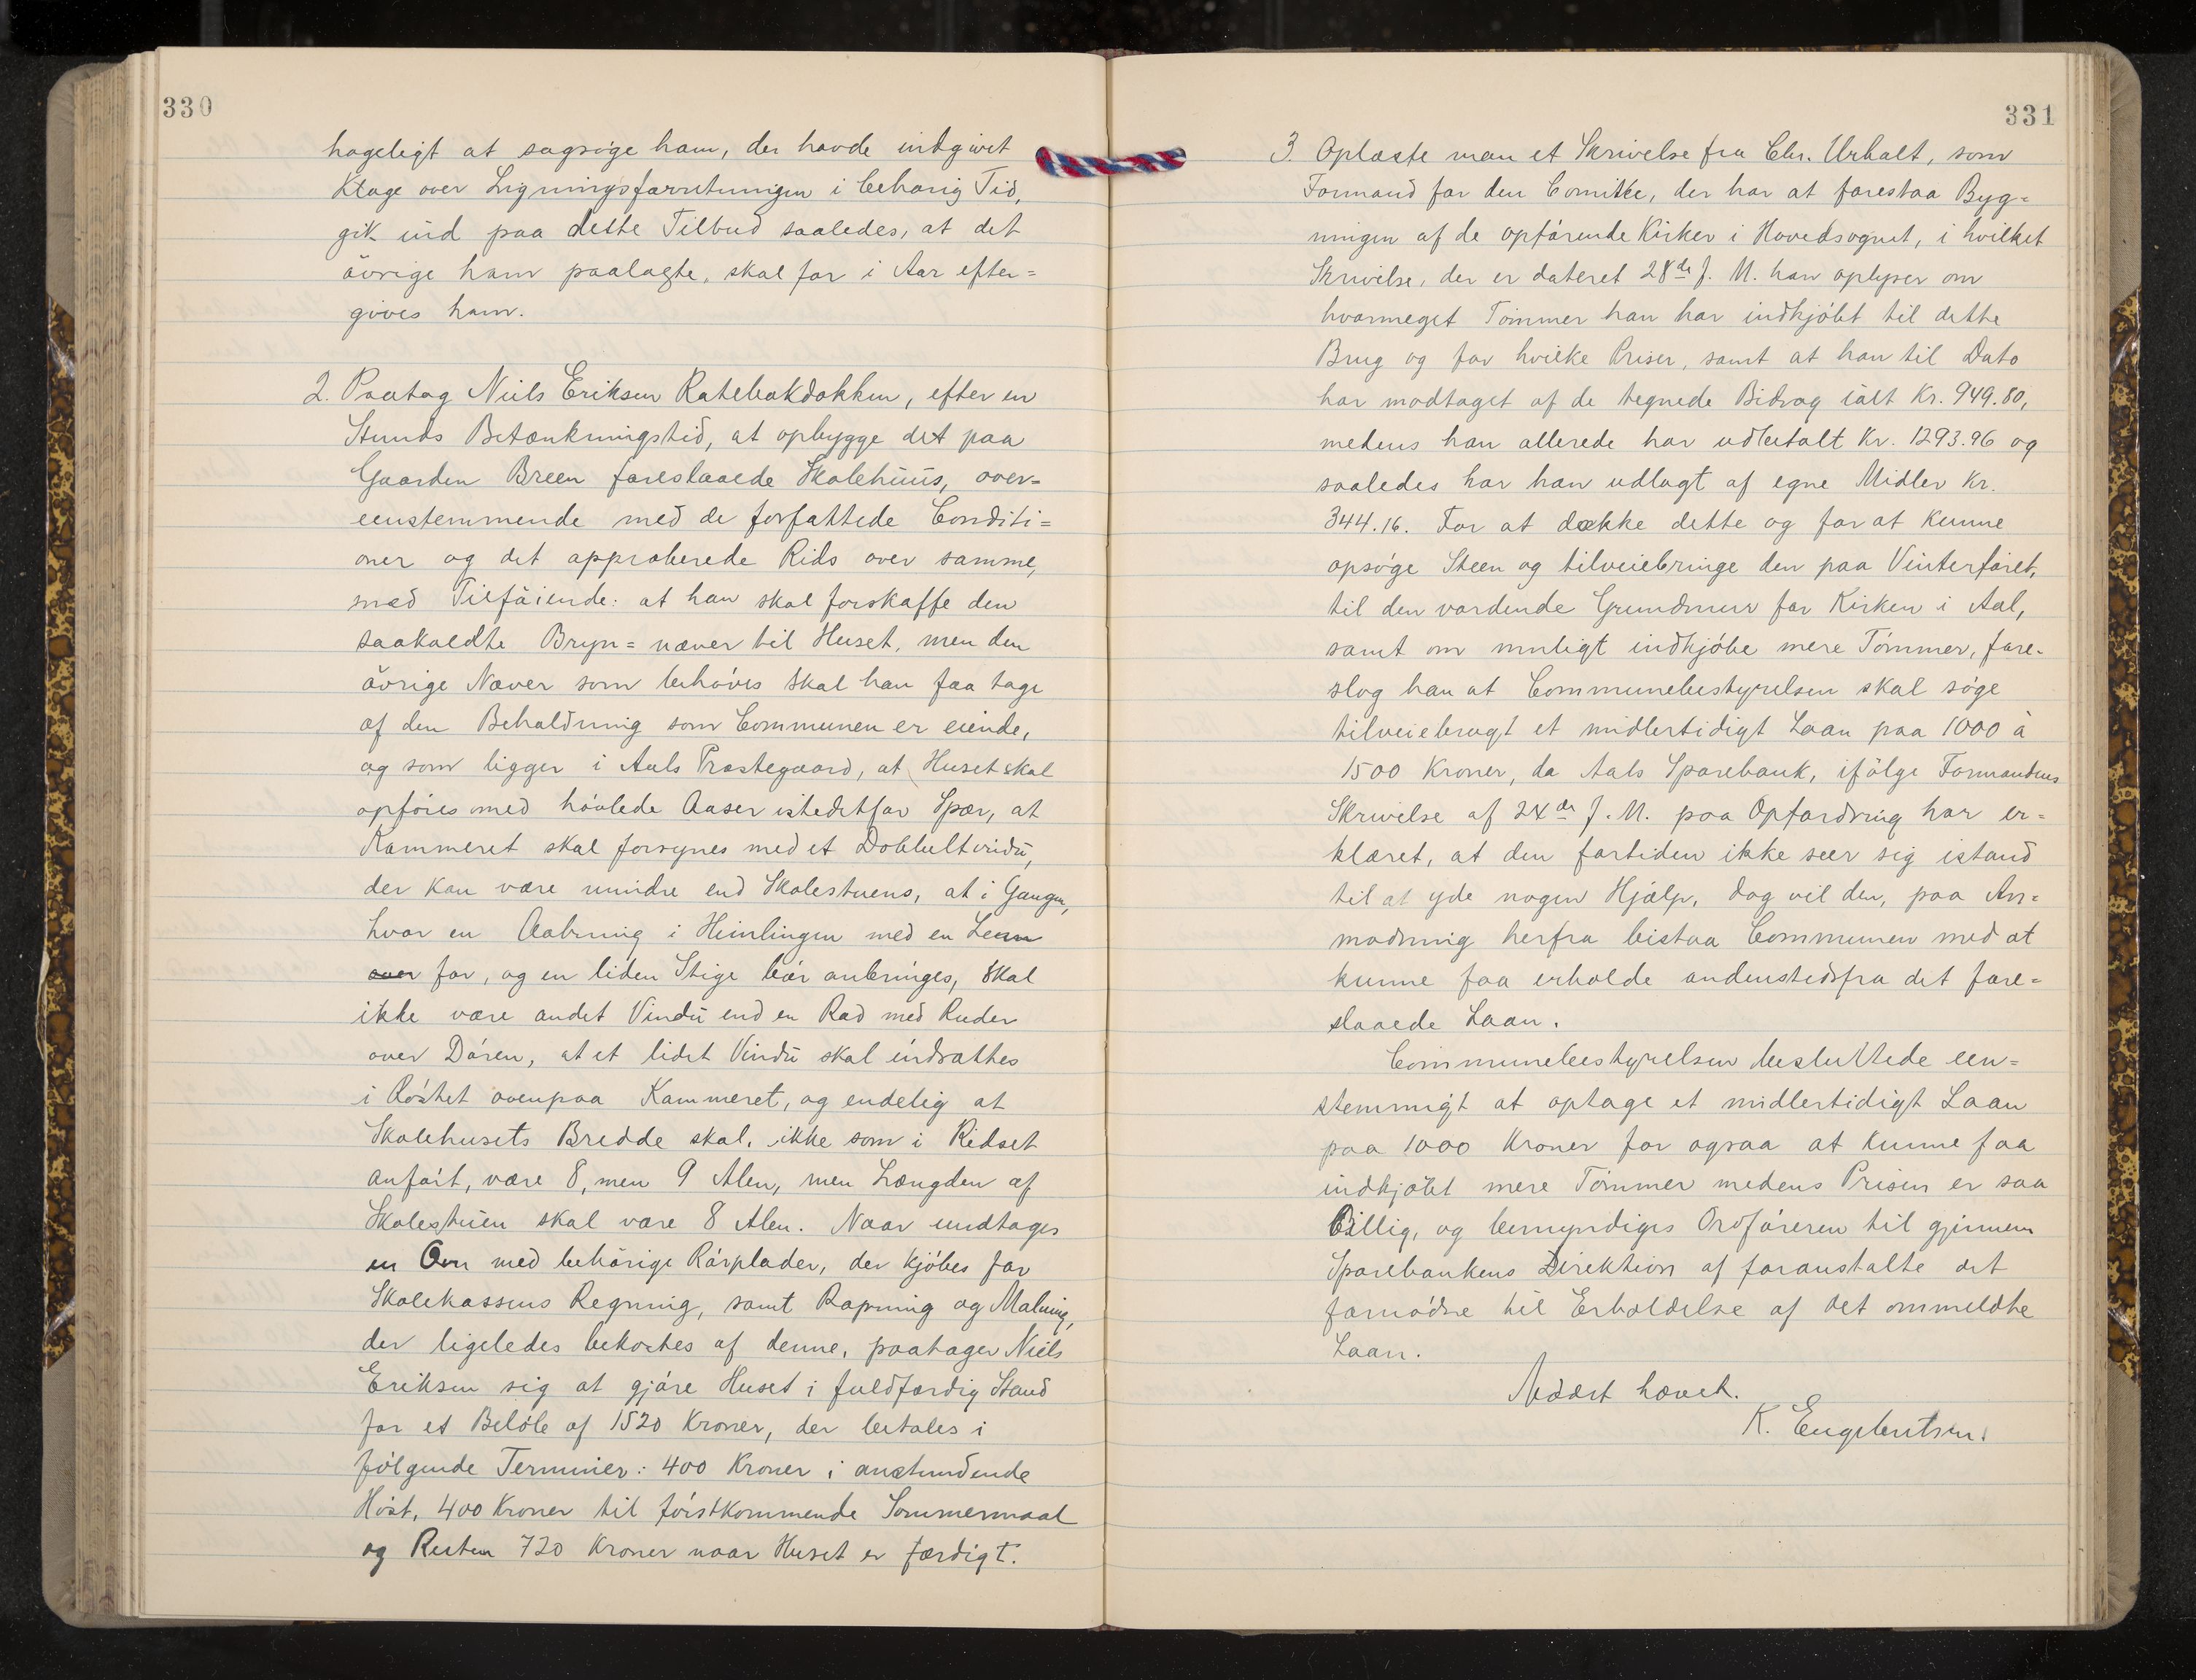 330
hageligt at sagsøge ham, der havde indgivet
Klage over Ligningsforretningen i behørig Tid,
gik ind paa dette Tilbud saaledes, at det
øvrige ham paalagte, skal for i Aar efter=
gives ham.
2. Paatog Niels Eriksen Ratebakdokken, efter en
Stunds Betænkningstid, at opbygge det paa
Gaarden Breen foreslaaede Skolehuus, over=
eenstemmende med de forfattede Conditi=
oner og det approberede Rids over samme,
med Tilføiende: at han skal forskaffe den
saakaldte Bryn=næver til Huset, men den
øvrige Næver som behøves skal han faa tage
af den Beholdning som Communen er eiende,
og som ligger i Aals Præstegaard, at Huset skal
opføres med høvlede Aaser istedetfor Spær, at
Kammeret skal forsynes med et Dobbeltvindu,
der kan være mindre end Skolestuens, at i Gangen,
hvor en Aabning i Himlingen med en Lem
over for, og en liden Stige bør anbringes, skal
ikke være andet Vindu end en Rad med Ruder
over Døren, at et lidet Vindu skal indsættes
i Røstet ovenpaa Kammeret, og endelig at
Skolehusets Bredde skal, ikke som i Ridset
anført, være 8, men 9 Alen, men Længden af
Skolestuen skal være 8 Alen. Naar undtages
en Ovn med behørige Rørplader, der kjøbes for
Skolekassens Regning, samt Rapning og Maling,
der ligeledes bekostes af denne, paatager Niels
Eriksen sig at gjøre Huset i fuldfærdig Stand
for et Beløb af 1520 Kroner, der betales i
følgende Terminer: 400 Kroner i anstundende
Høst, 400 Kroner til førstkommende Sommermaal
og Resten 720 Kroner naar Huset er færdigt.
331
3. Oplæste man et Skrivelse fra Chr. Urhalt, som
Formand for den Comitee, der har at forestaa Byg=
ningen af de opførende Kirker i Hovedsognet, i hvilket
Skrivelse, der er dateret 28de f. M. han oplyser om
hvormeget Tømmer han har indkjøbt til dette
Brug og for hvilke Priser, samt at han til Dato
har modtaget af de tegnede Bidrag ialt Kr. 949.80,
medens han allerede har udbetalt Kr. 1293.96 og
saaledes har han udlagt af egne Midler Kr.
344.16. For at dække dette og for at kunne
opsøge Steen og tilveiebringe den paa Vinterføret,
til den vordende Grundmur for Kirken i Aal,
samt om muligt indkjøbe mere Tømmer, fore-
slog han at Communebestyrelsen skal søge
tilveiebragt et midlertidigt Laan paa 1000 à
1500 Kroner, da Aals Sparebank, ifølge Formandens
Skrivelse af 24de f. M. paa Opfordring har er=
klæret, at den fortiden ikke seer sig istand
til at yde nogen Hjælp, dog vil den, paa An=
modning herfra bistaa Communen med at
kunne faa erholde andenstedsfra det fore=
slaaede Laan.
Communebestyrelsen besluttede een=
stemmigt at optage et midlertidigt Laan
paa 1000 Kroner for ogsaa at kunne faa
indkjøbt mere Tømmer medens Prisen er saa
Billig, og bemyndiges Ordføreren til gjennem
Sparebankens Direktion af foranstalte det
fornødne til Erholdelse af det ommeldte
Laan.
Mødet hævet.
K. Engebretsen.